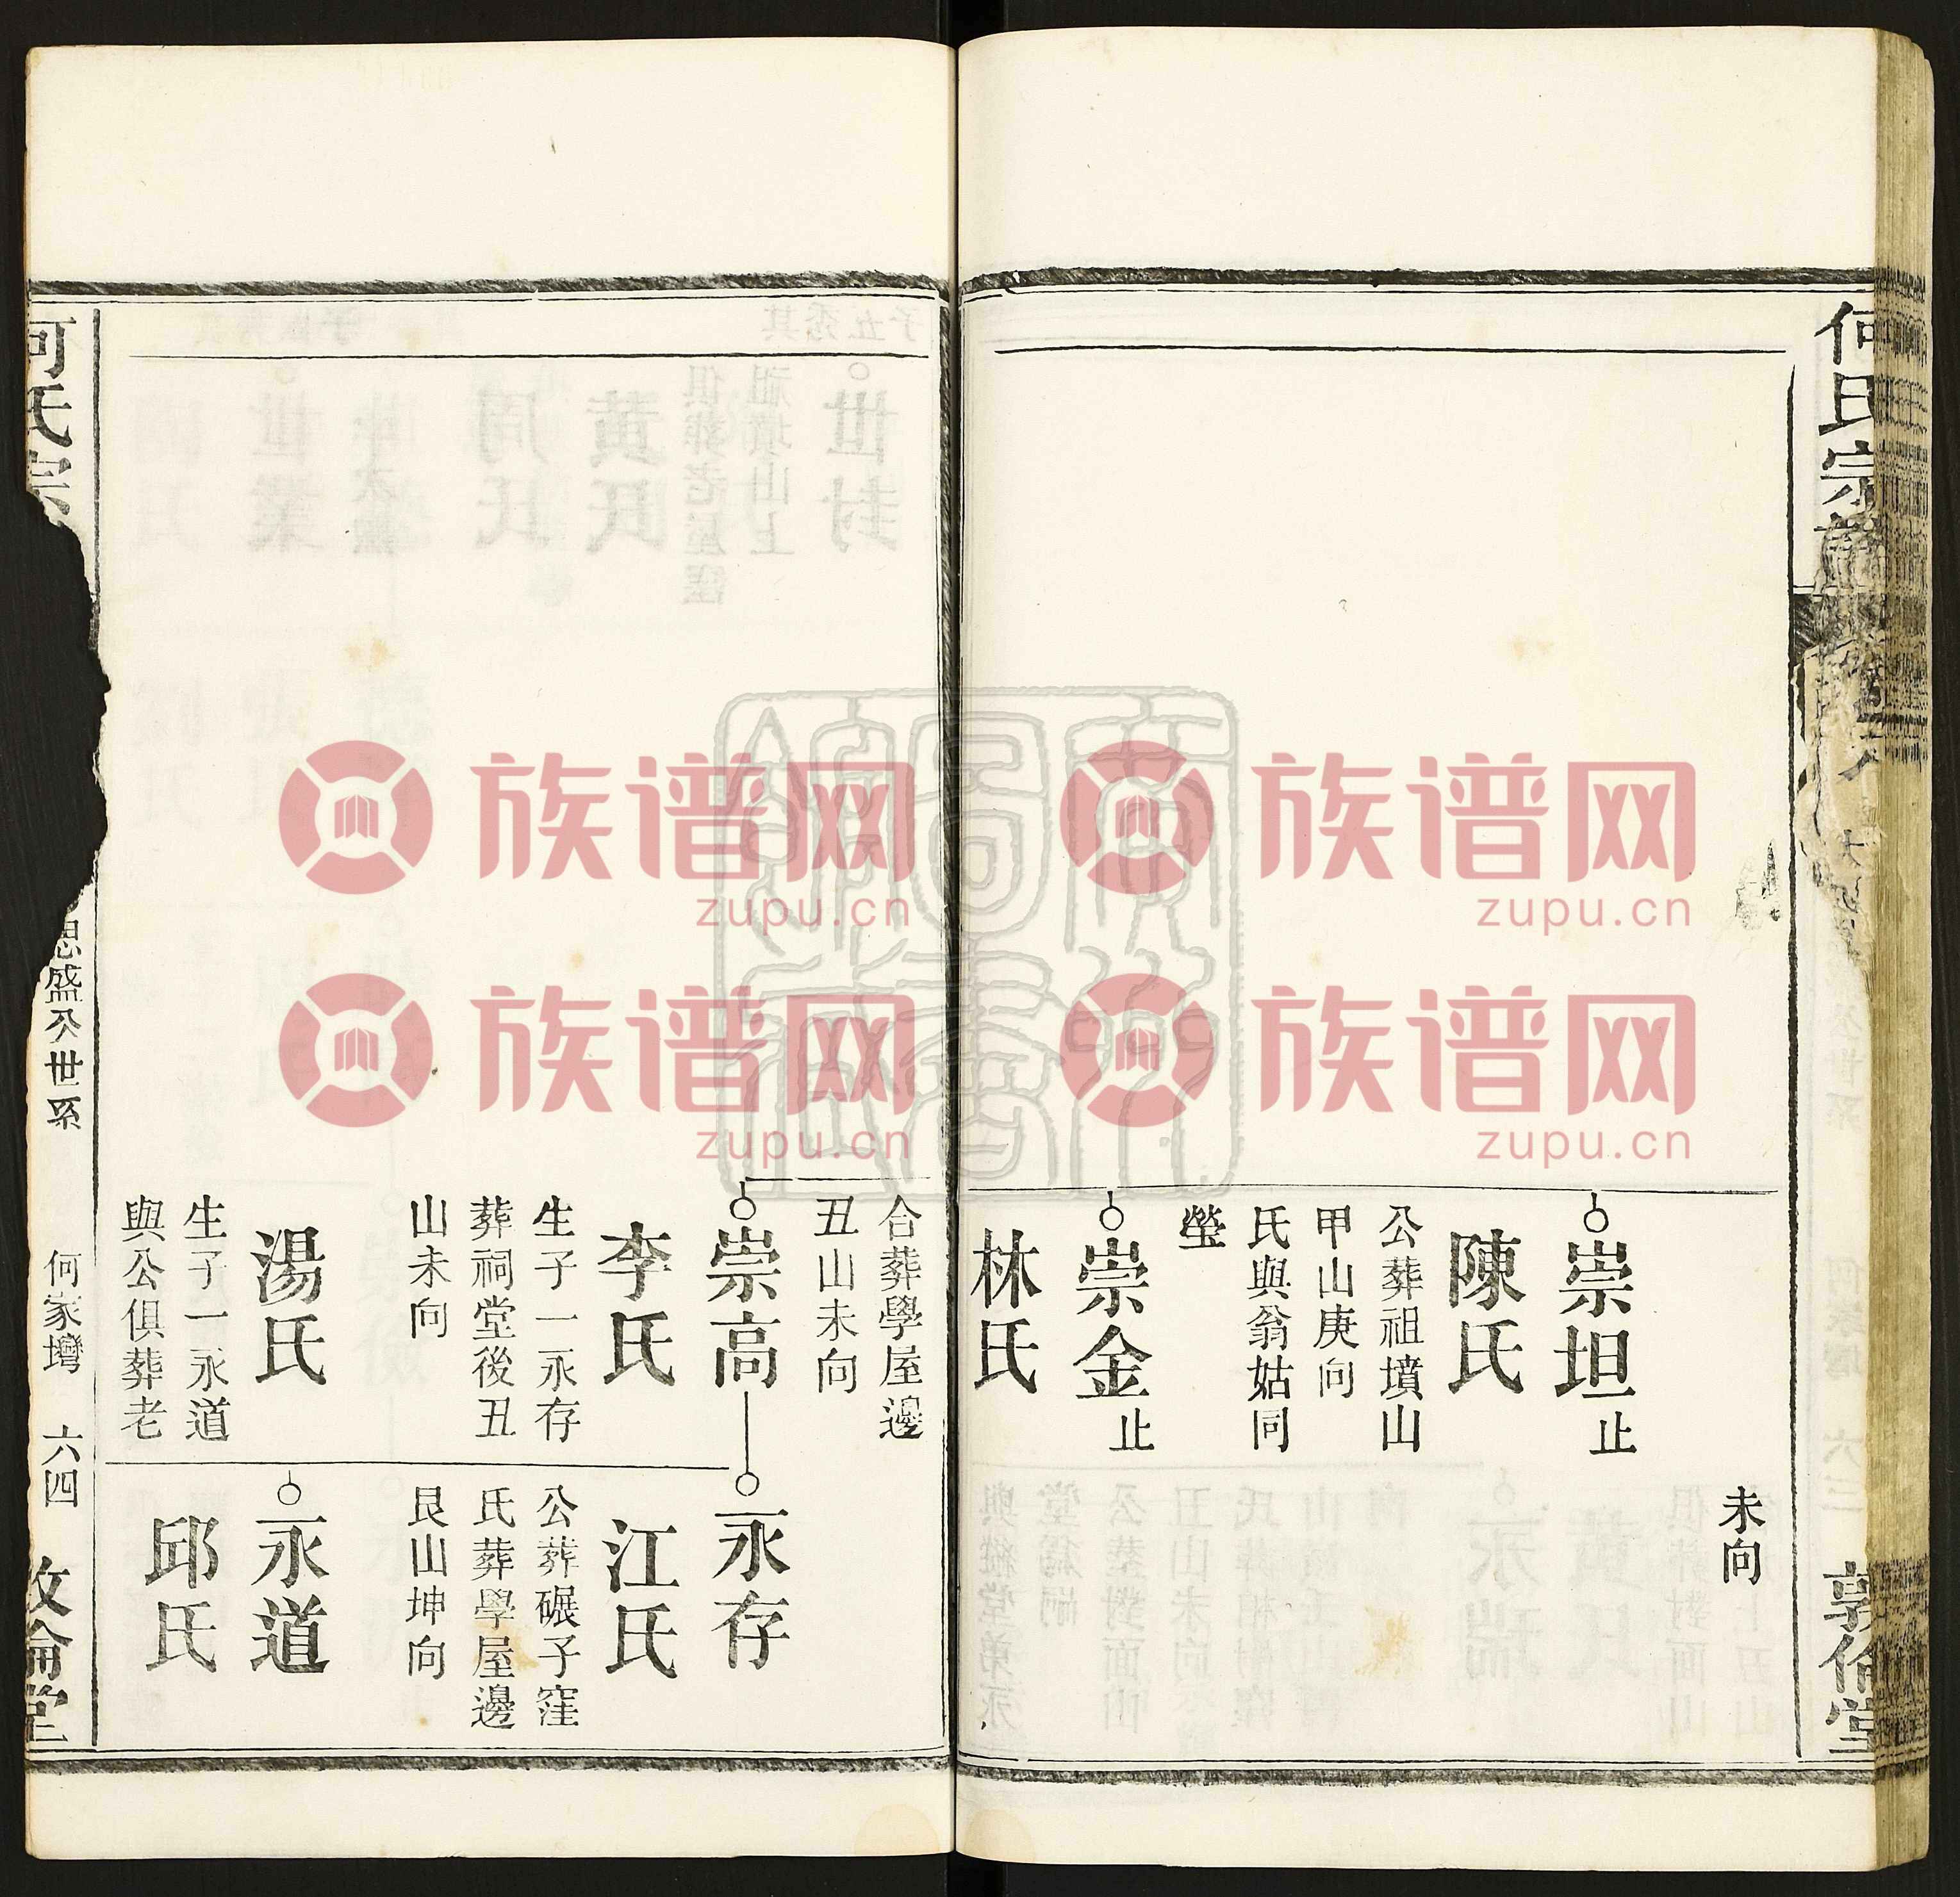 何氏宗譜
敦倫堂
未向
崇坦止
陳氏
公葬祖墳山
甲山庚向
氏與翁姑同
瑩
崇金止
林氏
合葬學屋邊
丑山未向
崇高
李氏
生子一永存
葬祠堂後丑
山未向
湯氏
生子一永道
與公俱葬老
永存
江氏
公葬碾子窪
氏葬學屋邊
艮山坤向
永道
邱氏
何氏宗
思盛公世系
何家灣
六四
敦倫堂
族谱网
zupu.cn
族谱网
zupu.cn
族谱网
zupu.cn
族谱网
zupu.cn